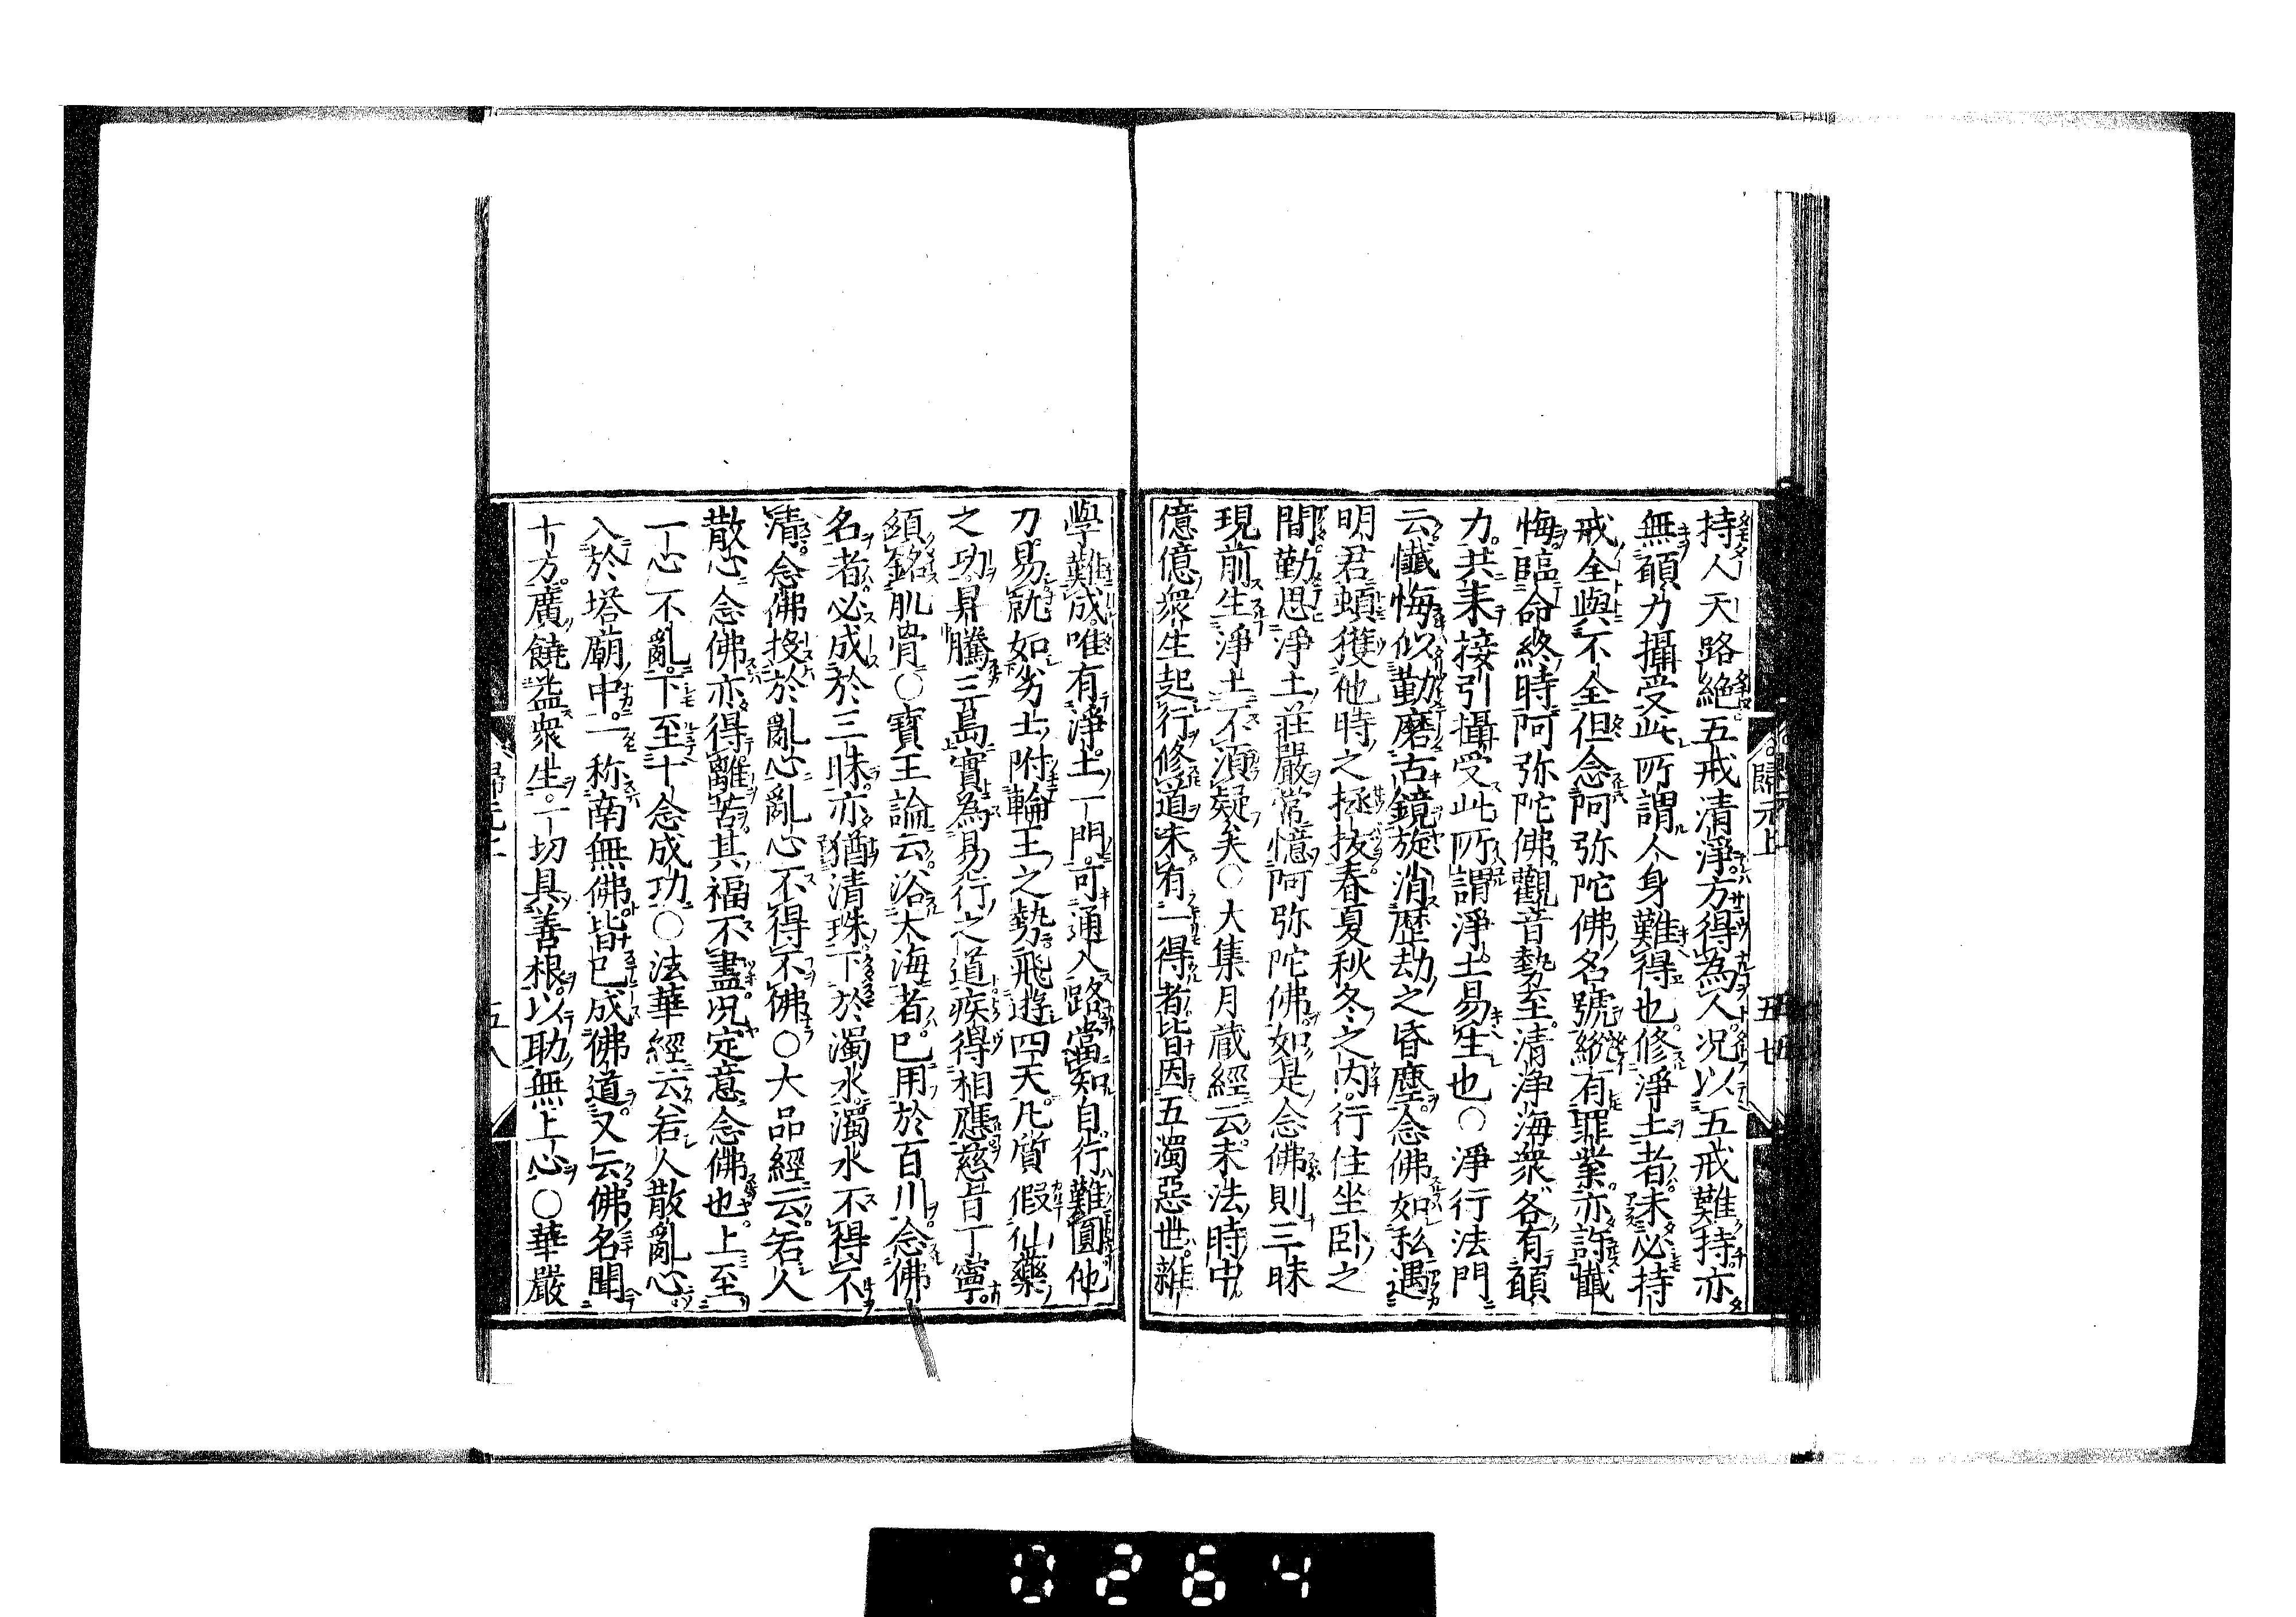 持人天路絶五戒清淨方得為人况以五戒難持亦
無願力攝受此所謂人身難得也修淨土者未必持
戒全與不全但念阿弥陀佛名號縱有罪業亦許懺
悔臨命終時阿弥陀佛觀音勢至清淨海衆各有願
力共来接引攝受此所謂淨土易生也○淨行法門
云懺悔似勤磨古鏡旋消歷劫之昏塵念佛如私遇
明君頓獲他時之拯拔春夏秋冬之内行住坐卧之
間勤思淨土莊嚴常憶阿弥陀佛如是念佛則三昧
現前生淨土不須疑矣○大集月蔵經云末法時中
億億衆生起行修道未有一得者皆因五濁惡世雜
歸元上
五七
學難成唯有淨土一門可通入路當知自行難圓他
力易就如劣士附輪王之勢飛遊四天凡質假仙藥
之功昇騰三島實為易行之道疾得相應慈旨丁寧
須銘肌骨○寶王論云浴大海者已用於百川念佛
名者必成於三昧亦猶清珠下於濁水濁水不得不
清念佛投於亂心亂心不得不佛○大品經云若人
散心念佛亦得離苦其福不盡况定意念佛也上至
一心不亂下至十念成功○法華經云若人散亂心
入於塔廟中一称南無佛皆已成佛道又云佛名聞
十方廣饒益衆生一切具善根以助無上心○華嚴
五八
0264